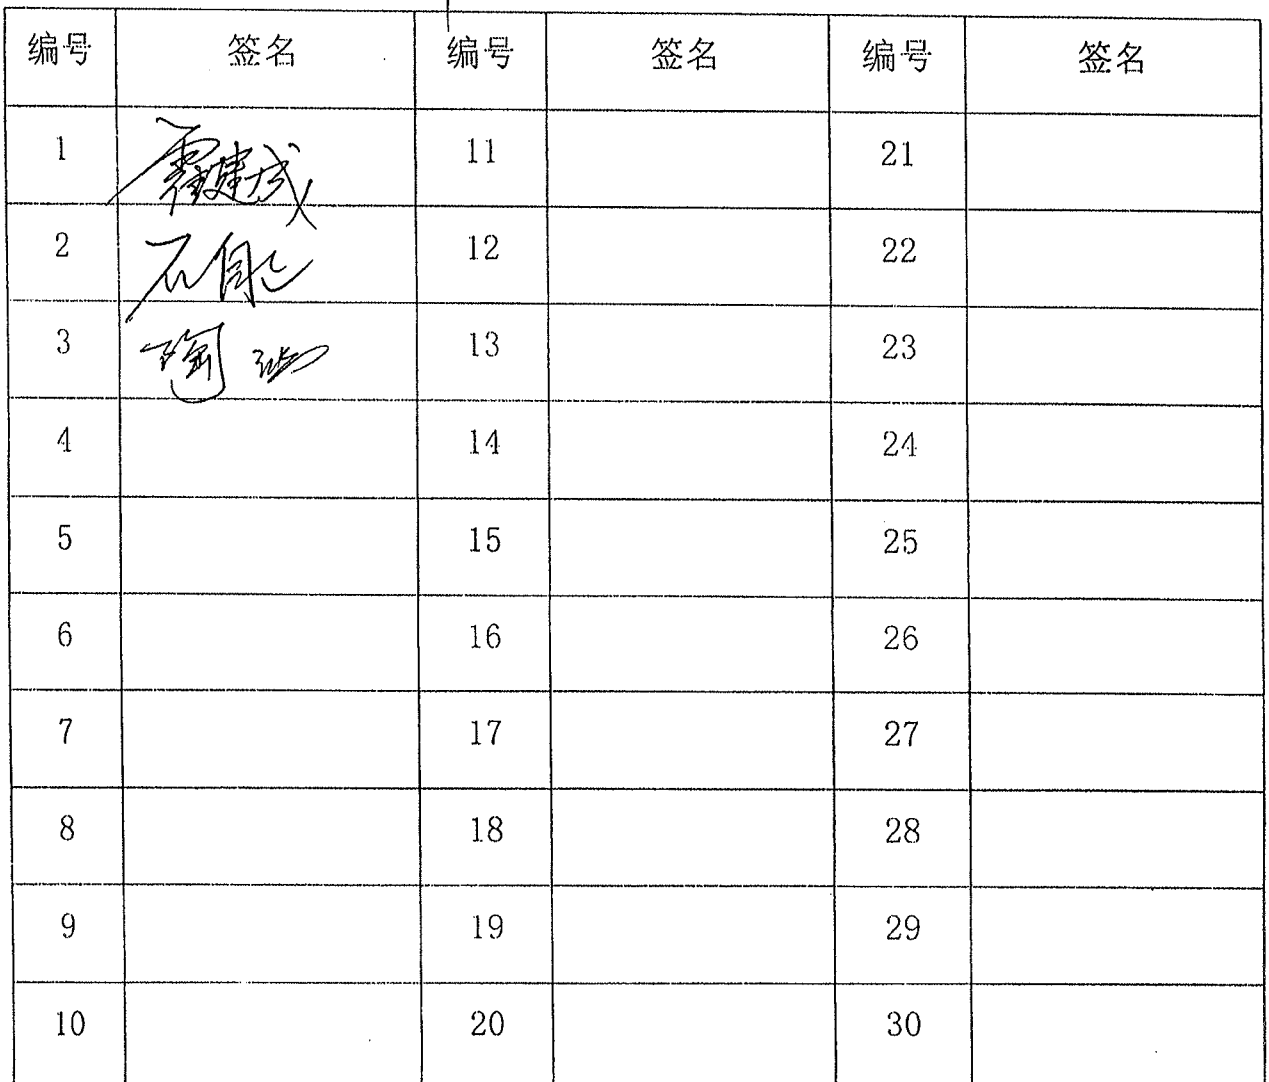 编号 签名 编号 签名 编号 签名
1 11 21
2 石 12 22
3 陶 13 23
4 14 24
5 15 25
6 16 26
7 17 27
8 18 28
9 19 29
10 20 30